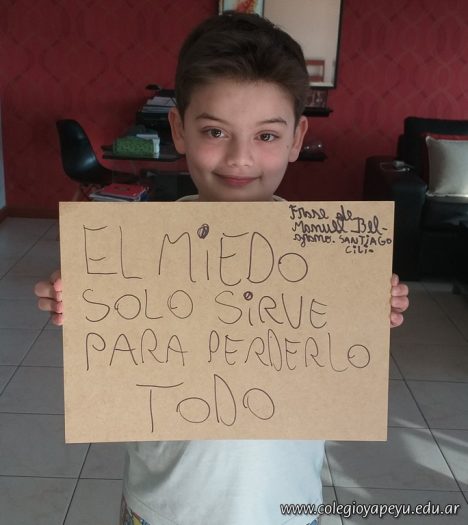 Frase de
Manuel Bel-
grano. SANTIAGO
CiLio
EL MiEDO
SOLO SiRVE
PARA PERDERLO
TODO
www.colegioyapeyu.edu.ar